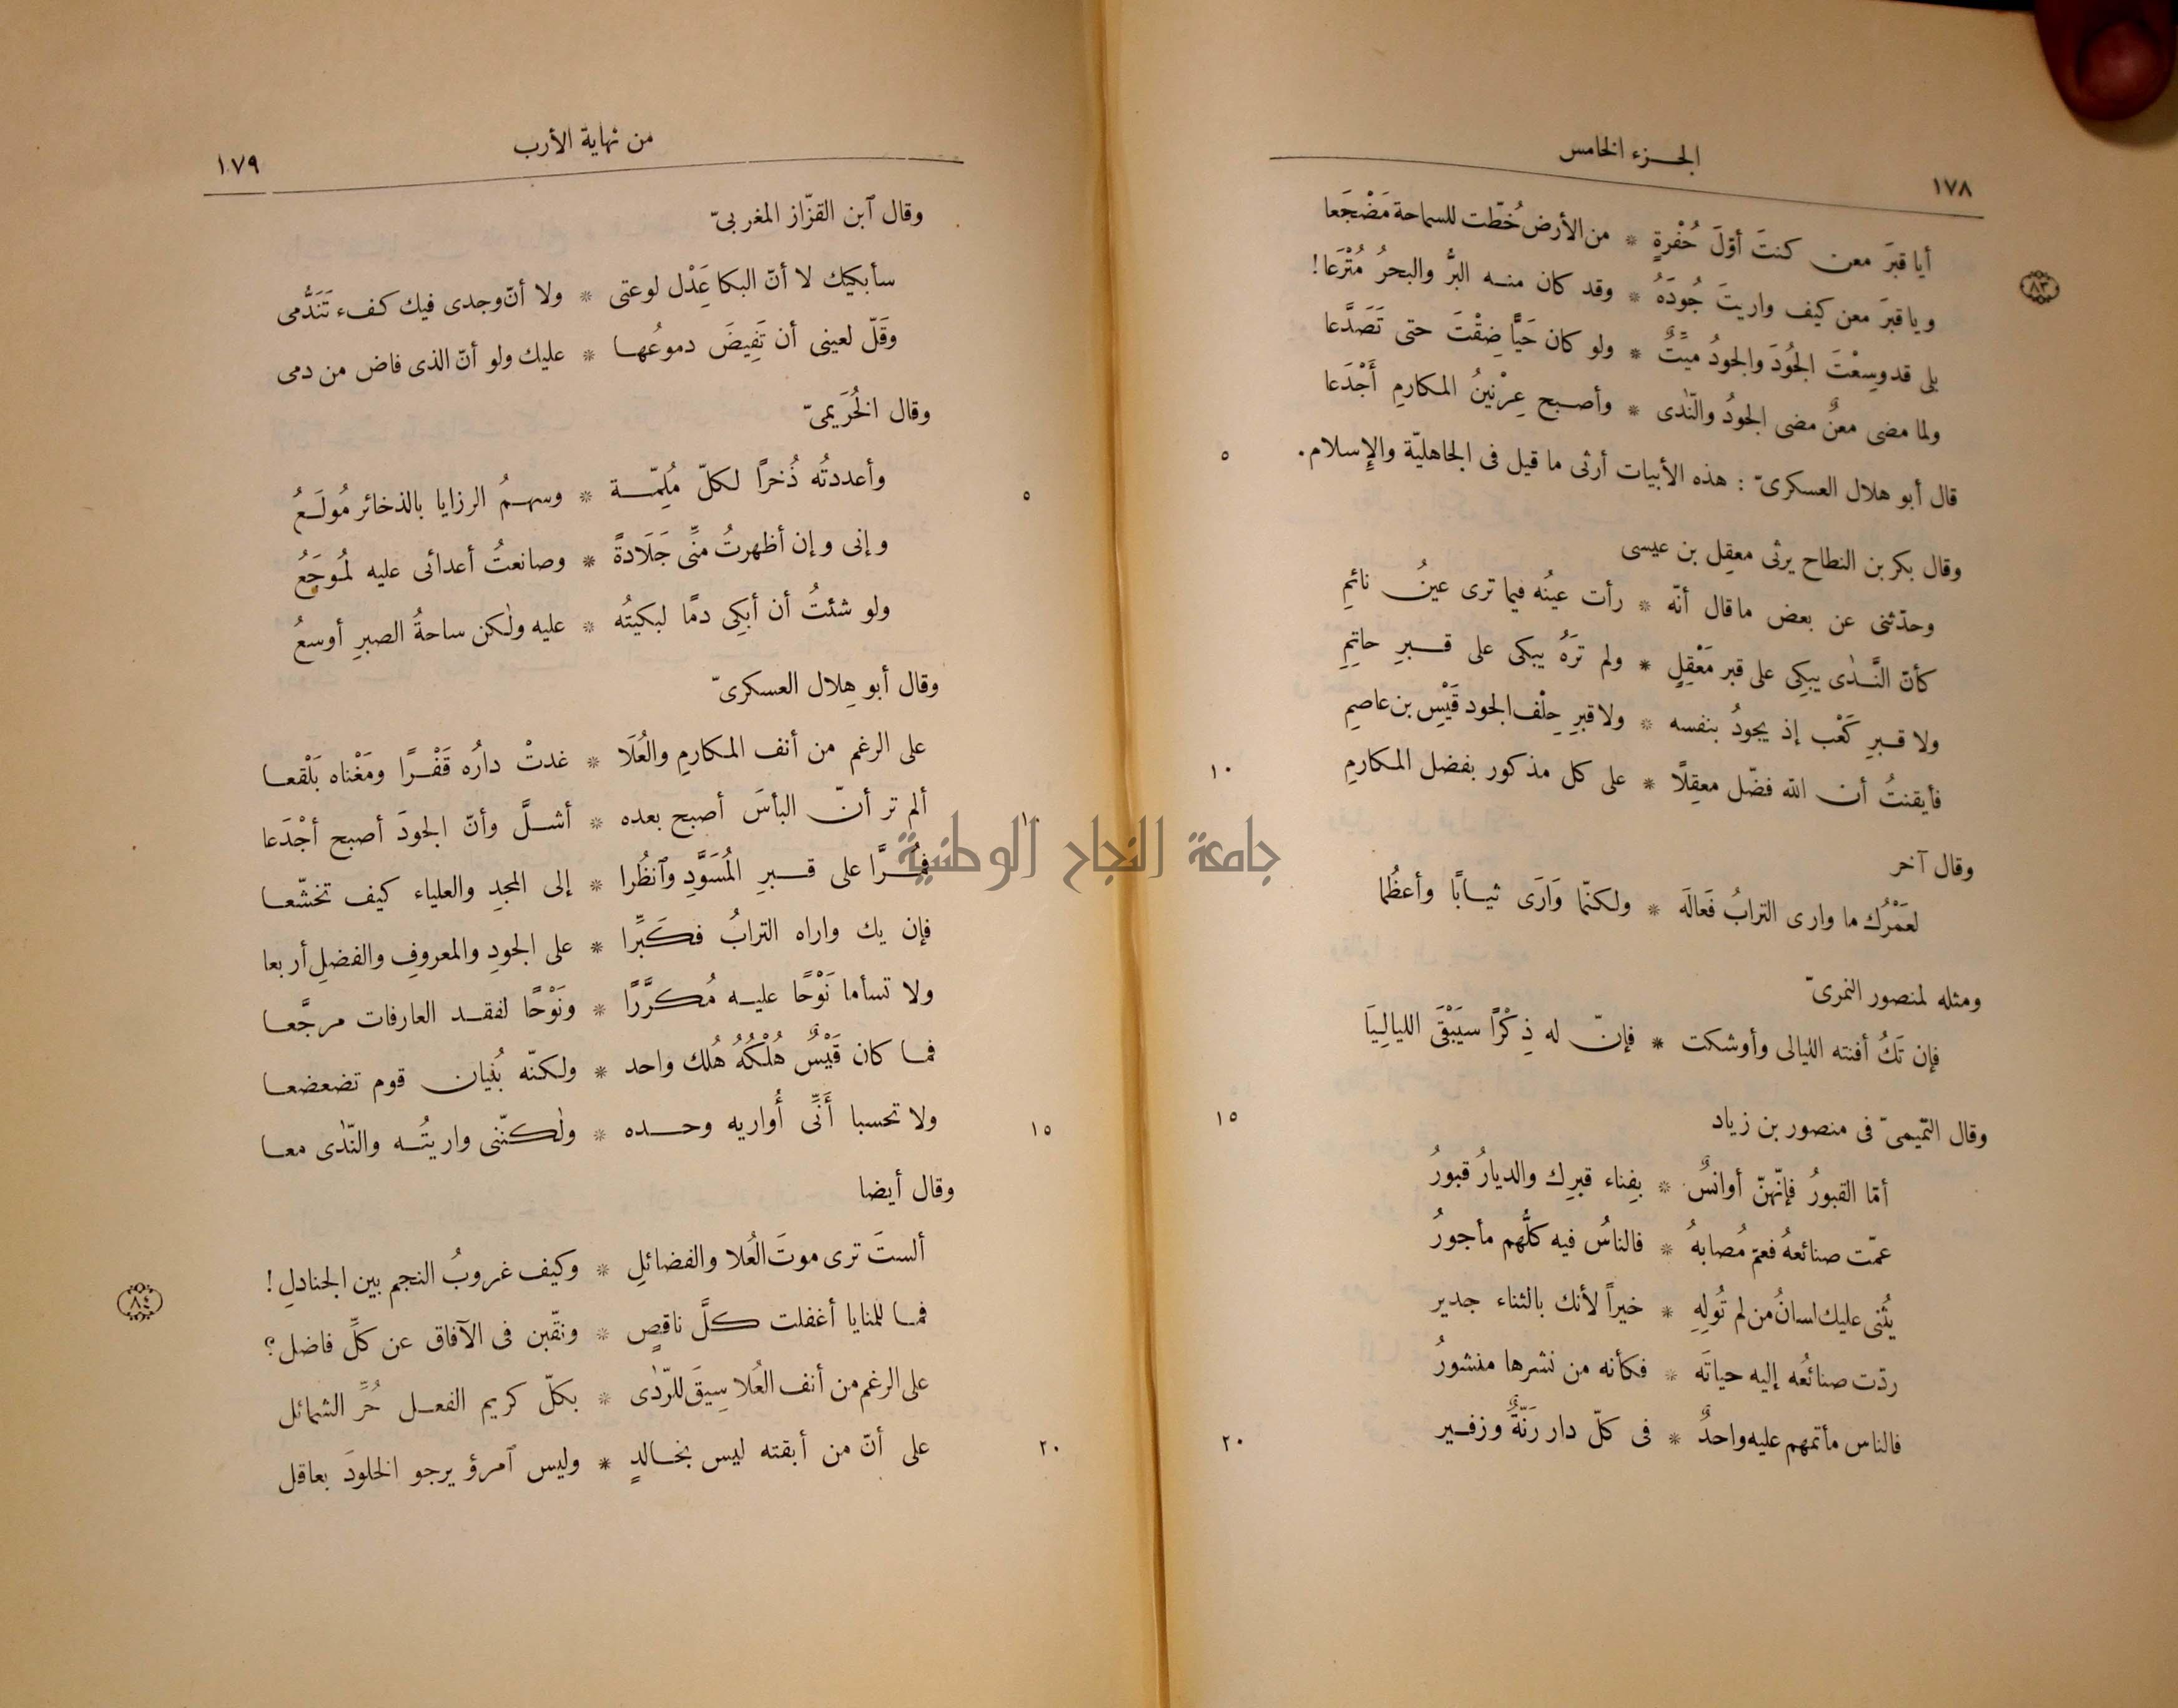 ١٧٨
الجزء الخامس
أيا قبرَ معن كنتَ أوّلَ حُفْرةٍ * من الأرض خُطّت للسماحة مَضْجَعا
ويا قبرَ معن كيف واريتَ جُودَهُ * وقد كان منه البرُّ والبحرُ مُتْرَعا!
٨٣
بلى قد وسِعْتَ الجُودَ والجودُ ميّتٌ * ولو كان حَيًّا ضِقْتَ حتى تَصَدَّعا
ولما مضى معنٌ مضى الجودُ والنّدى * وأصبح عِرْنينُ المكارمِ أَجْدَعا
قال أبو هلال العسكرىّ : هذه الأبيات أرثى ما قيل فى الجاهليّة والإسلام.
٥
وقال بكر بن النطاح يرثى معقِل بن عيسى
وحدّثنى عن بعض ما قال أنّه * رأت عينُه فيما ترى عينُ نائمِ
كأنّ النَّدٰى يبكِى على قبر مَعْقِلٍ * ولم تَرَهُ يبكى على قبرِ حاتِمِ
ولا قبرِ كَعْب إذ يجودُ بنفسه * ولا قبرِ حِلْف الجود قَيْسِ بن عاصمِ
فأيقنتُ أن الله فضّل معقِلًا * على كل مذكور بفضل المكارمِ
١٠
وقال آخر
لعَمْرُك ما وارى الترابُ فَعالَه * ولكنّما وَارَى ثيابًا وأعظُما
ومثله لمنصور النمرىّ
فإن تَكُ أفنته الليالى وأوشكت * فإنّ له ذِكْرًا سيَبْقَى اللياليَا
وقال التّميمىّ فى منصور بن زياد
١٥
أمّا القبورُ فإنّهنّ أوانسٌ * بِفِناء قبرِك والديارُ قبورُ
عمّت صنائعهُ فعمّ مُصابهُ * فالناسُ فيه كلُّهم مأجورُ
يُثنى عليك لسانُ من لم تُولِهِ * خيراً لأنك بالثناء جدير
ردّت صنائعُه إليه حياتَه * فكأنه من نشرها منشورُ
فالناس مأتمهم عليه واحدٌ * فى كلّ دار رَنّةٌ وزفير
٢٠
من نهاية الأرب
١٧٩
وقال ٱبن القزّاز المغربىّ
سأبكيك لا أنّ البكا عَِدْل لوعتى * ولا أنّ وجدى فيك كفء تَنَدُّمى
وقَلّ لعينى أن تَفِيضَ دموعُها * عليك ولو أنّ الذى فاض من دمى
وقال الخُرَيمىّ
وأعددتُه ذُخرًا لكلّ مُلِمّة * وسهمُ الرزايا بالذخائر مُولَعُ
٥
وإنى وإن أظهرتُ منِّى جَلَادةً * وصانعتُ أعدائى عليه لمُوجَعُ
ولو شئتُ أن أبكِى دمًا لبكيتُه * عليه ولٰكن ساحةُ الصبرِ أوسعُ
وقال أبو هِلال العسكرىّ
على الرغم من أنف المكارمِ والعُلَا * غدتْ دارُه قَفْرًا ومَغْناه بَلْقعا
ألم تر أنّ البأسَ أصبح بعده * أشلَّ وأنّ الجودَ أصبح أجْدَعا
١٠
فمُرَّا على قبرِ المُسَوَّدِ وٱنظُرا * إلى المجدِ والعلياء كيف تخشّعا
فإن يك واراه الترابُ فكَبِّرا * على الجودِ والمعروفِ والفضلِ أربعا
ولا تسأما نَوْحًا عليه مُكرَّرًا * ونَوْحًا لفقد العارفات مرجَّعا
فما كان قَيْسٌ هُلْكُهُ هُلك واحد * ولكنّه بُنيان قوم تضعضعا
ولا تحسبا أَنِّى أُواريه وحده * ولٰكنّنى واريتُه والنّدٰى معا
١٥
وقال أيضا
ألستَ ترى موتَ العُلا والفضائلِ * وكيف غروبُ النجم بين الجنادلِ!
٨٤
فما للمنايا أغفلت كلَّ ناقصٍ * ونقّبن فى الآفاق عن كلِّ فاضل؟
على الرغم من أنف العُلا سِيقَ للرّدٰى * بكلّ كريم الفعل حُرِّ الشمائل
على أنّ من أبقته ليس بخالدٍ * وليس ٱمرؤ يرجو الخلودَ بعاقل
٢٠
جامعة النجاح الوطنية